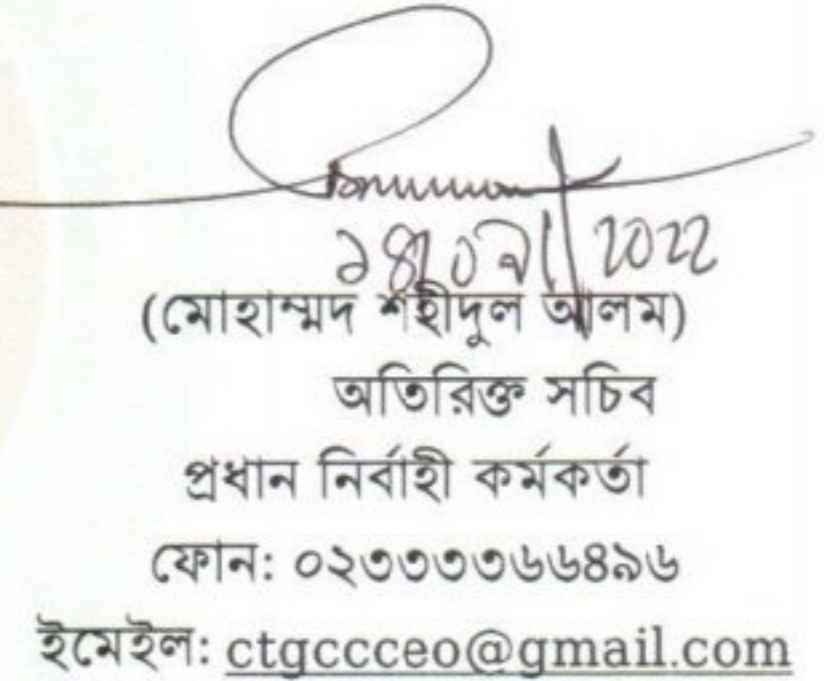 (মোহাম্মদ শহীদুল আলম)
অতিরিক্ত সচিব
প্রধান নির্বাহী কর্মকর্তা
ফোন: ০২৩৩৩৩৬৬৪৯৬
ইমেইল: ctgccceo@gmail.com